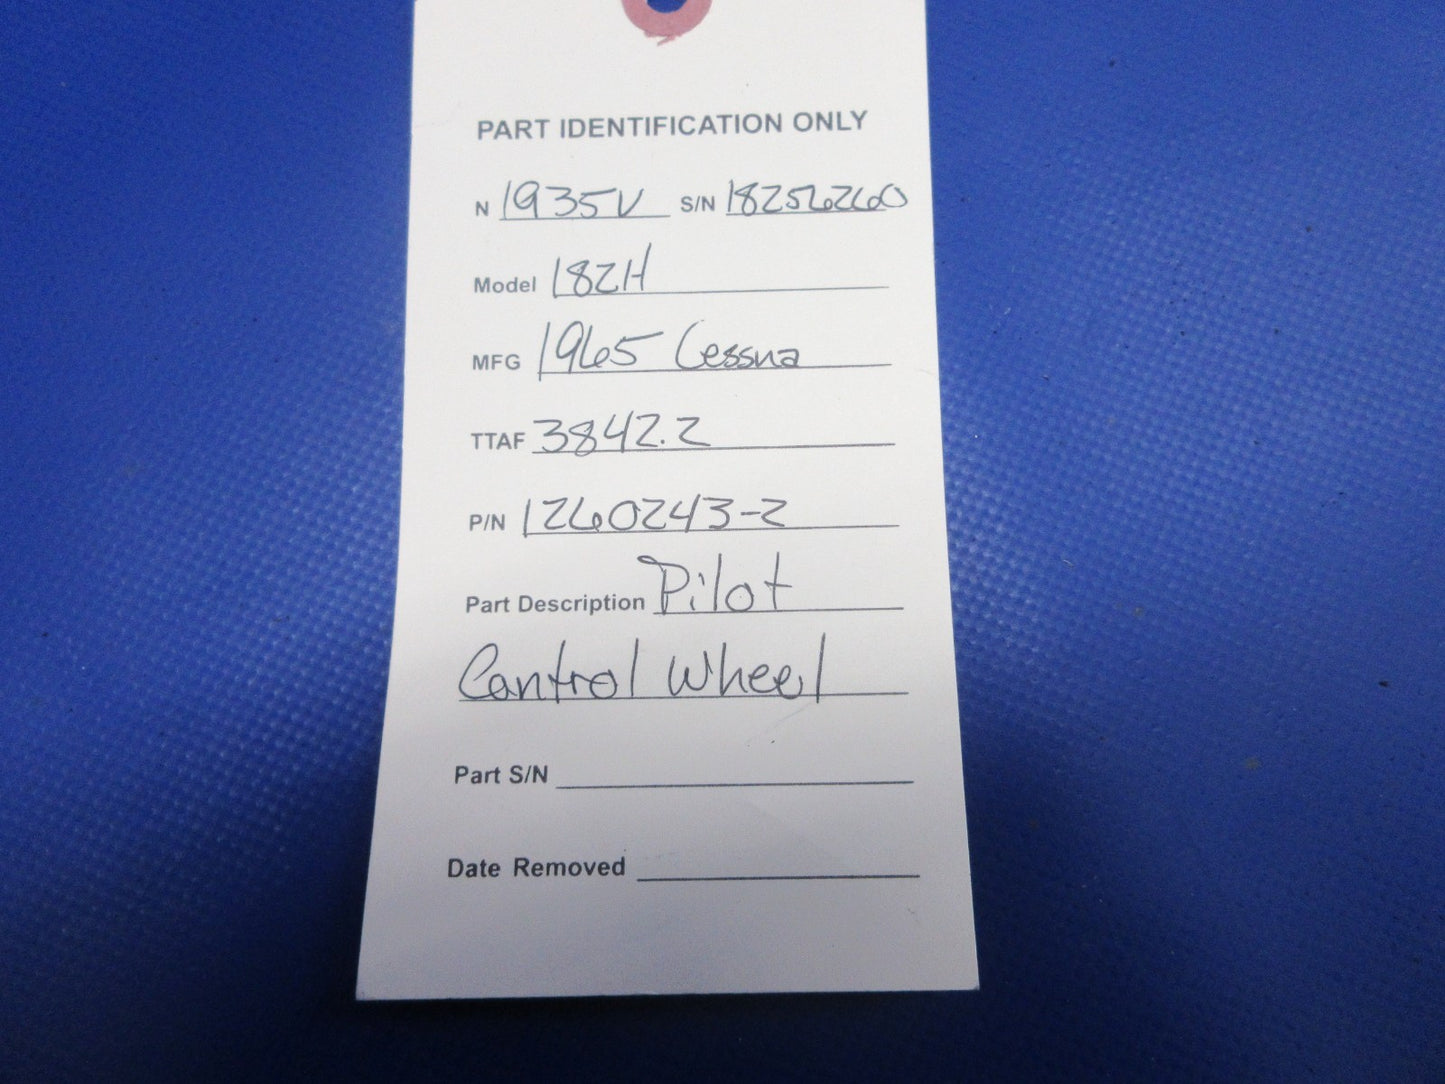 PART IDENTIFICATION ONLY
N 1935V S/N 18256260
Model 182H
MFG 1965 Cessna
TTAF 3842.2
P/N 1260243-2
Part Description Pilot
Control Wheel
Part S/N
Date Removed